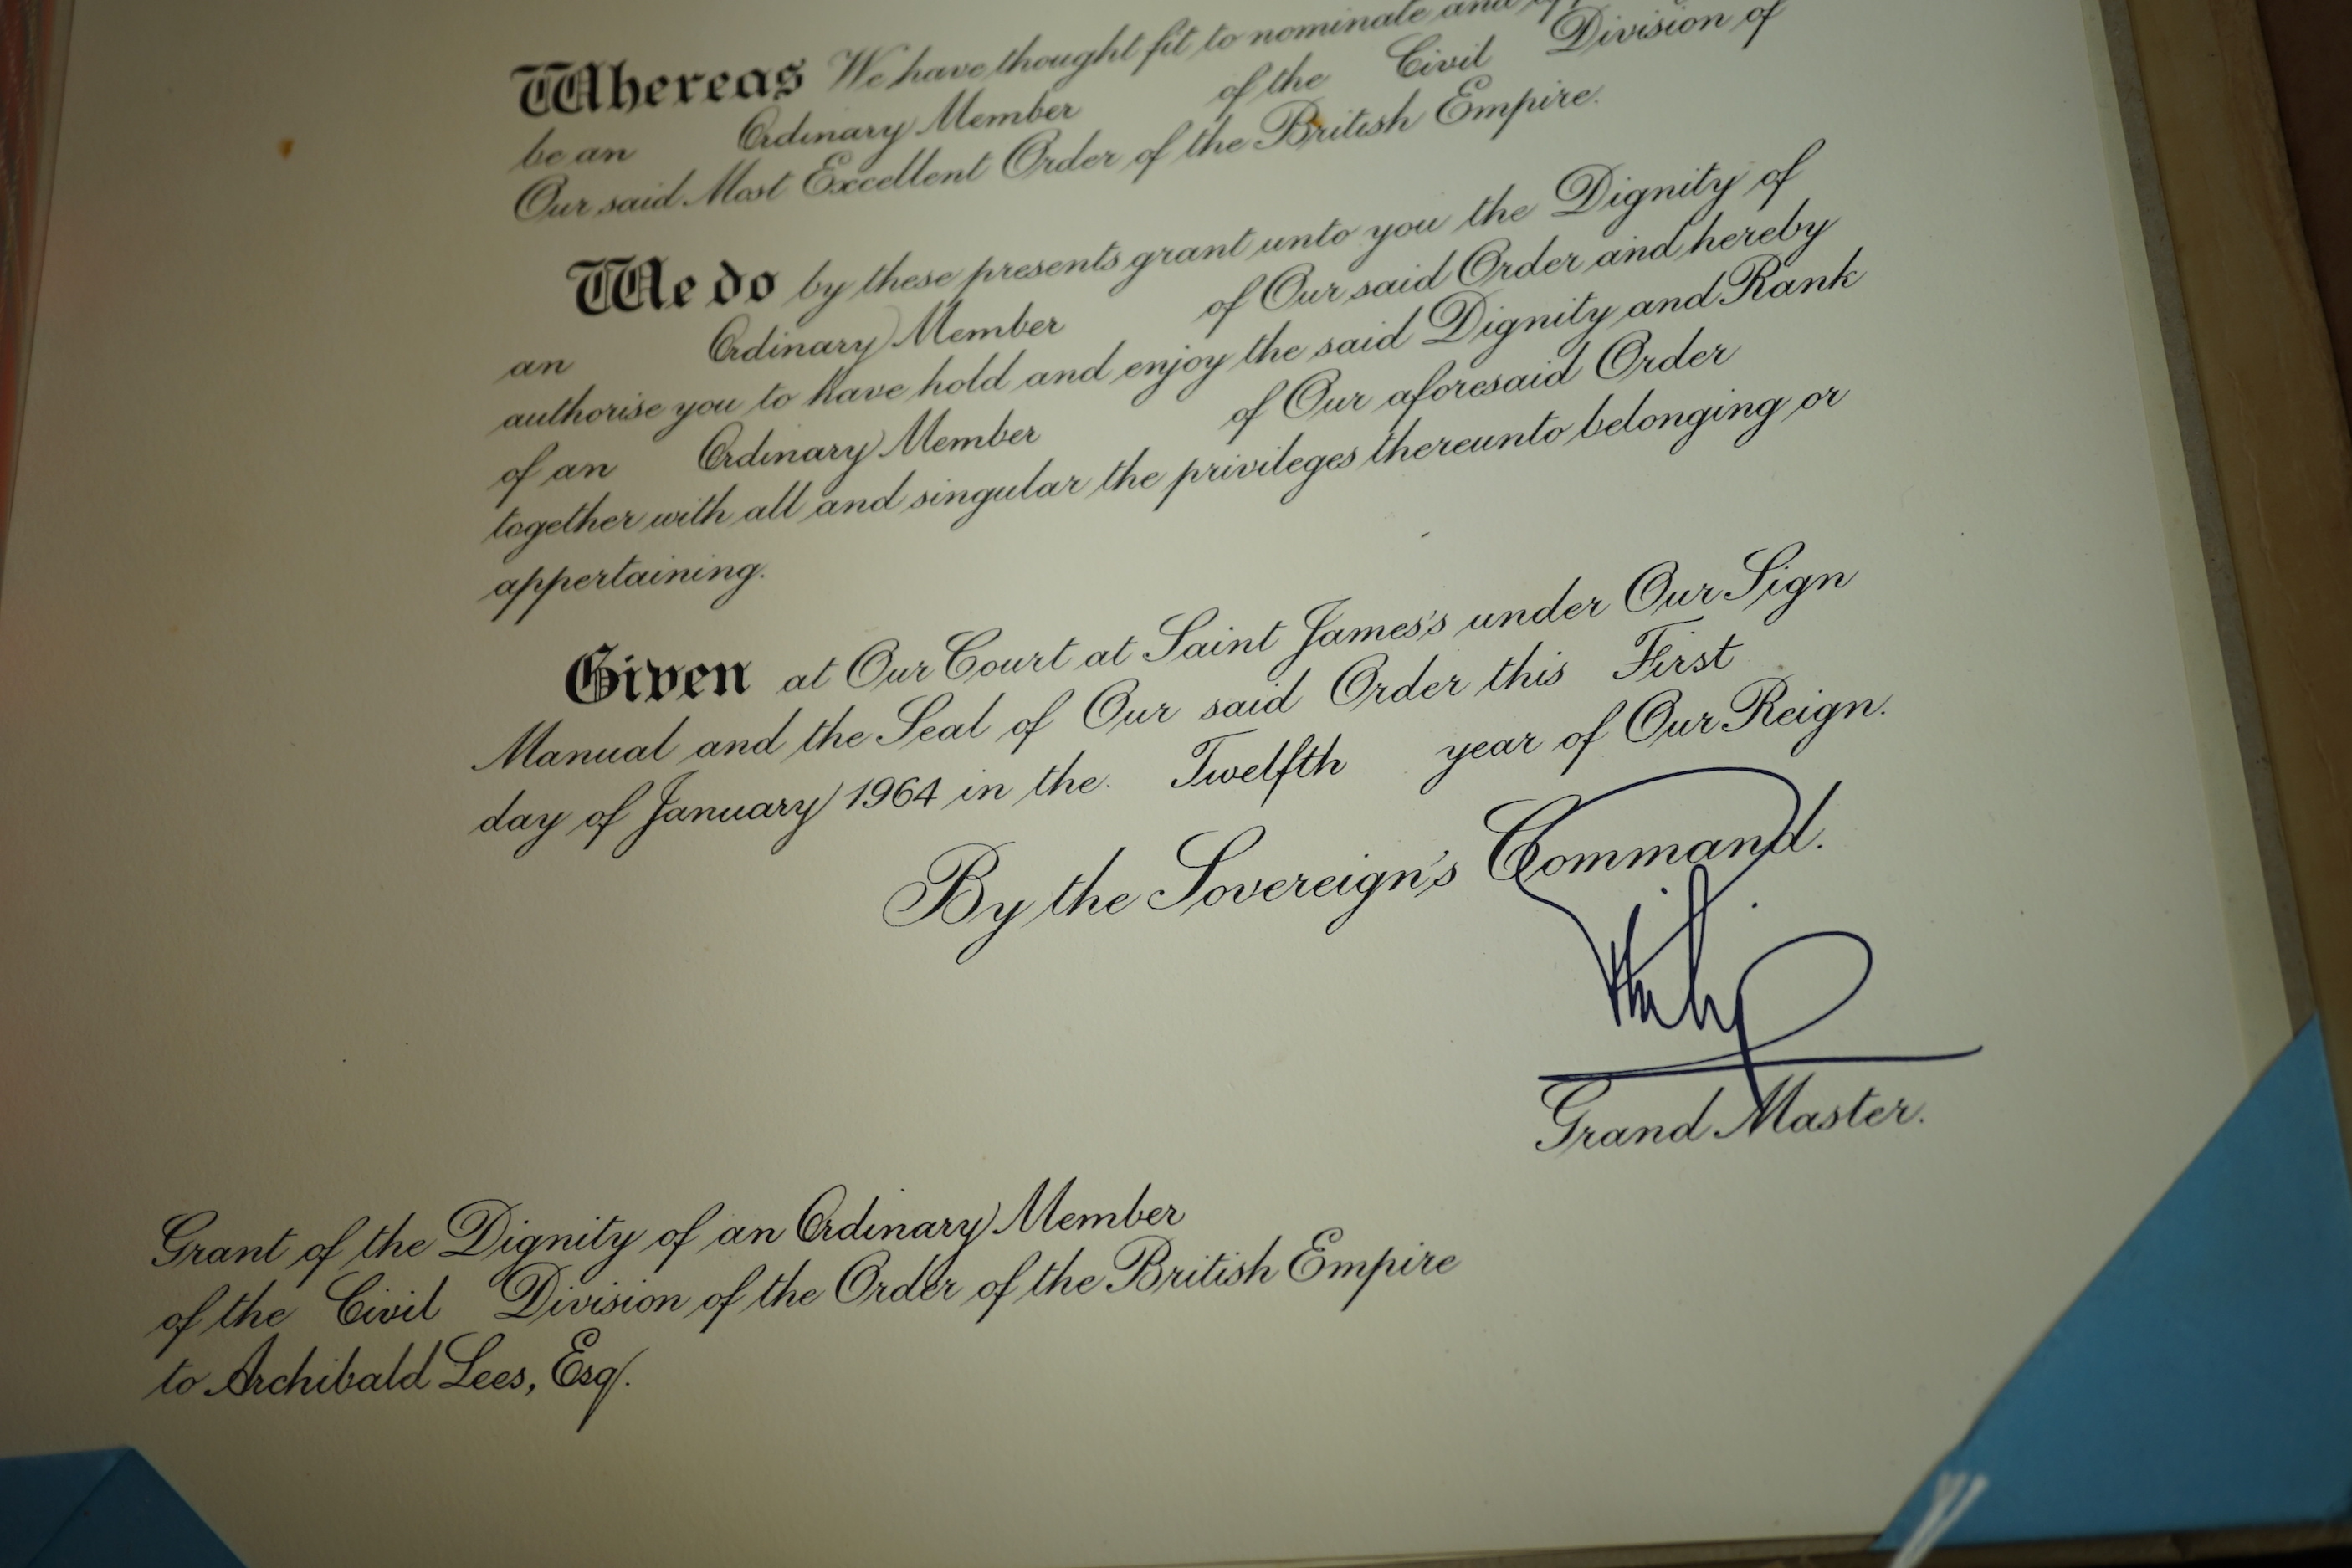 Whereas We have thought fit to nominate and
be an Ordinary Member of the Civil Division of
Our said Most Excellent Order of the British Empire.
We do by these presents grant unto you the Dignity of
an Ordinary Member of Our said Order and hereby
authorise you to have hold and enjoy the said Dignity and Rank
of an Ordinary Member of Our aforesaid Order
together with all and singular the privileges thereunto belonging or
appertaining.
Given at Our Court at Saint James's under Our Sign
Manual and the Seal of Our said Order this First
day of January 1964 in the Twelfth year of Our Reign.
By the Sovereign's Command.
Philip
Grand Master.
Grant of the Dignity of an Ordinary Member
of the Civil Division of the Order of the British Empire
to Archibald Lees, Esq.